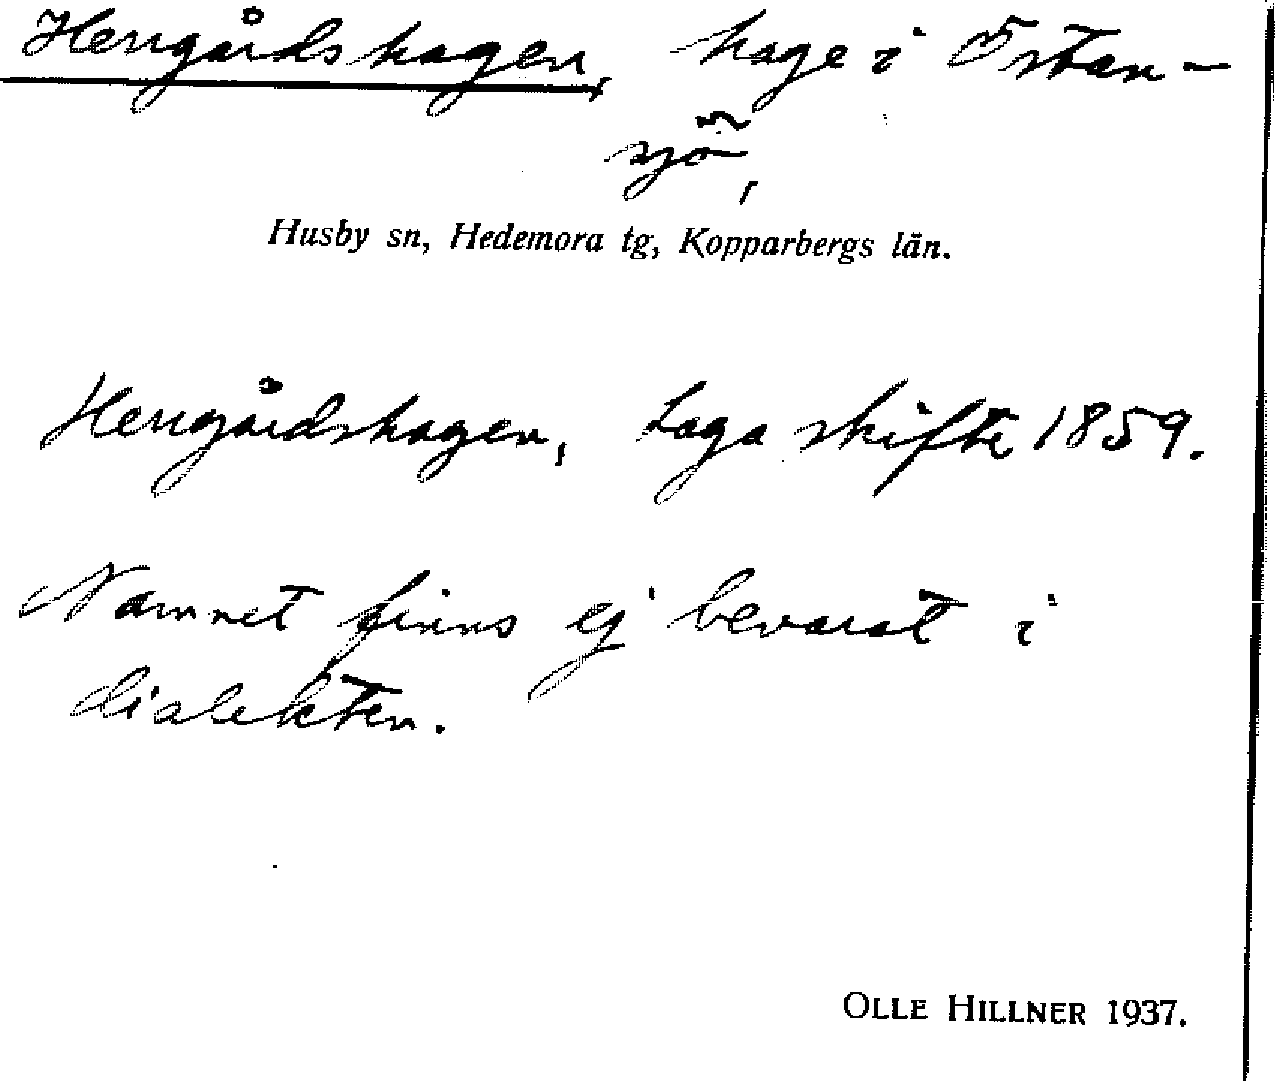 Herrgårdshagen, hage i Östan-
sjö,
Husby sn, Hedemora tg, Kopparbergs län.
Herrgårdshagen, Laga skifte 1859.
Namnet finns ej bevarat i
dialekten.
OLLE HILLNER 1937.